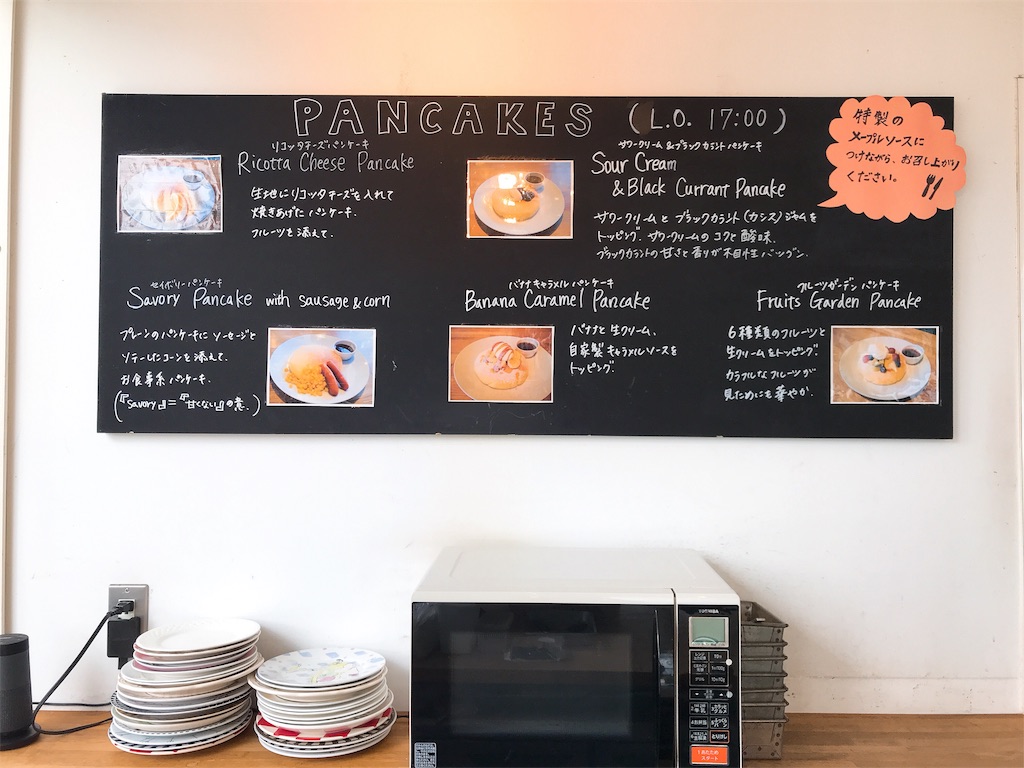 PANCAKES (L.O. 17:00)
特製の
メープルソースに
つけながら、お召し上がり
ください。
リコッタチーズパンケーキ
Ricotta Cheese Pancake
生地にリコッタチーズを入れて
焼きあげたパンケーキ.
フルーツを添えて.
サワークリーム&ブラックカラントパンケーキ
Sour Cream
& Black Currant Pancake
サワークリームとブラックカラント(カシス)ジャムを
トッピング. サワークリームのコクと酸味.
ブラックカラントの甘さと香りが不相性バツグン.
セイボリーパンケーキ
Savory Pancake with sausage & corn
プレーンのパンケーキにソーセージと
ソテーしたコーンを添えて.
お食事系パンケーキ.
(『savory』=『甘くない』の意.)
バナナキャラメルパンケーキ
Banana Caramel Pancake
バナナと生クリーム、
自家製キャラメルソースを
トッピング.
フルーツガーデンパンケーキ
Fruits Garden Pancake
6種類のフルーツと
生クリームをトッピング.
カラフルなフルーツが
見ためにも華やか.
TOSHIBA
スタート